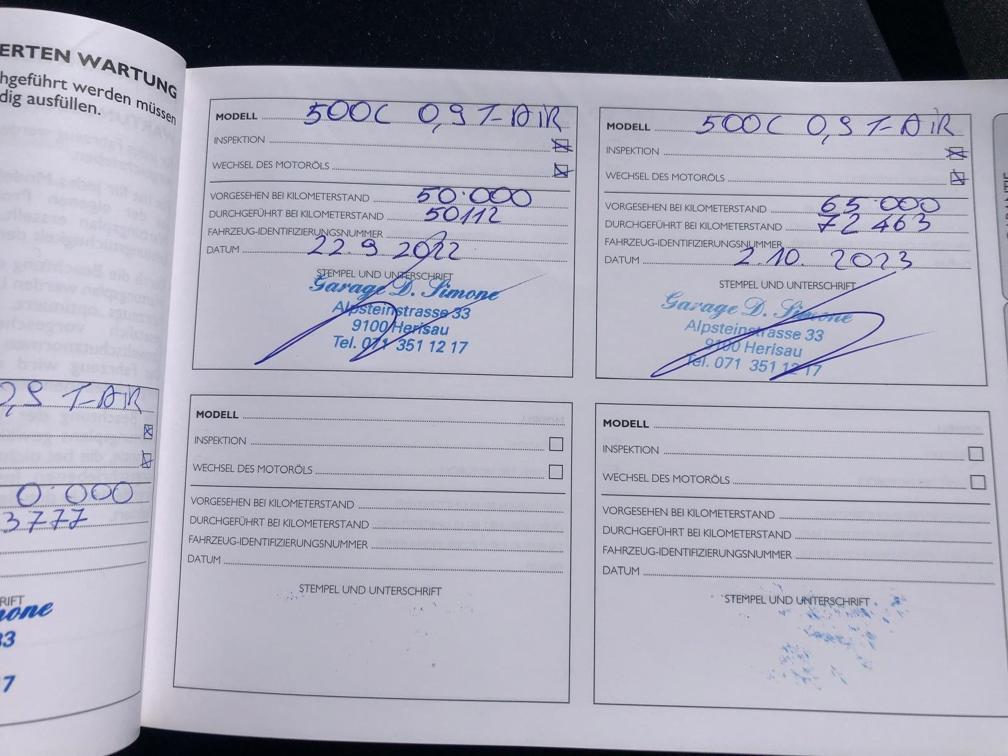 ERTEN WARTUNG
hgeführt werden müssen
dig ausfüllen.
0,9 T-AIR
0·000
3777
RIFT
none
33
7
MODELL 500C 0,9 T-AIR
INSPEKTION
WECHSEL DES MOTORÖLS
VORGESEHEN BEI KILOMETERSTAND 50·000
DURCHGEFÜHRT BEI KILOMETERSTAND 50112
FAHRZEUG-IDENTIFIZIERUNGSNUMMER
DATUM 22.9 2022
STEMPEL UND UNTERSCHRIFT
Garage D. Simone
Alpsteinstrasse 33
9100 Herisau
Tel. 071 351 12 17
MODELL 500C 0,9 T-AIR
INSPEKTION
WECHSEL DES MOTORÖLS
VORGESEHEN BEI KILOMETERSTAND 65·000
DURCHGEFÜHRT BEI KILOMETERSTAND 72463
FAHRZEUG-IDENTIFIZIERUNGSNUMMER
DATUM 2.10. 2023
STEMPEL UND UNTERSCHRIFT
Garage D. Simone
Alpsteinstrasse 33
9100 Herisau
Tel. 071 351 12 17
MODELL
INSPEKTION
WECHSEL DES MOTORÖLS
VORGESEHEN BEI KILOMETERSTAND
DURCHGEFÜHRT BEI KILOMETERSTAND
FAHRZEUG-IDENTIFIZIERUNGSNUMMER
DATUM
STEMPEL UND UNTERSCHRIFT
MODELL
INSPEKTION
WECHSEL DES MOTORÖLS
VORGESEHEN BEI KILOMETERSTAND
DURCHGEFÜHRT BEI KILOMETERSTAND
FAHRZEUG-IDENTIFIZIERUNGSNUMMER
DATUM
STEMPEL UND UNTERSCHRIFT